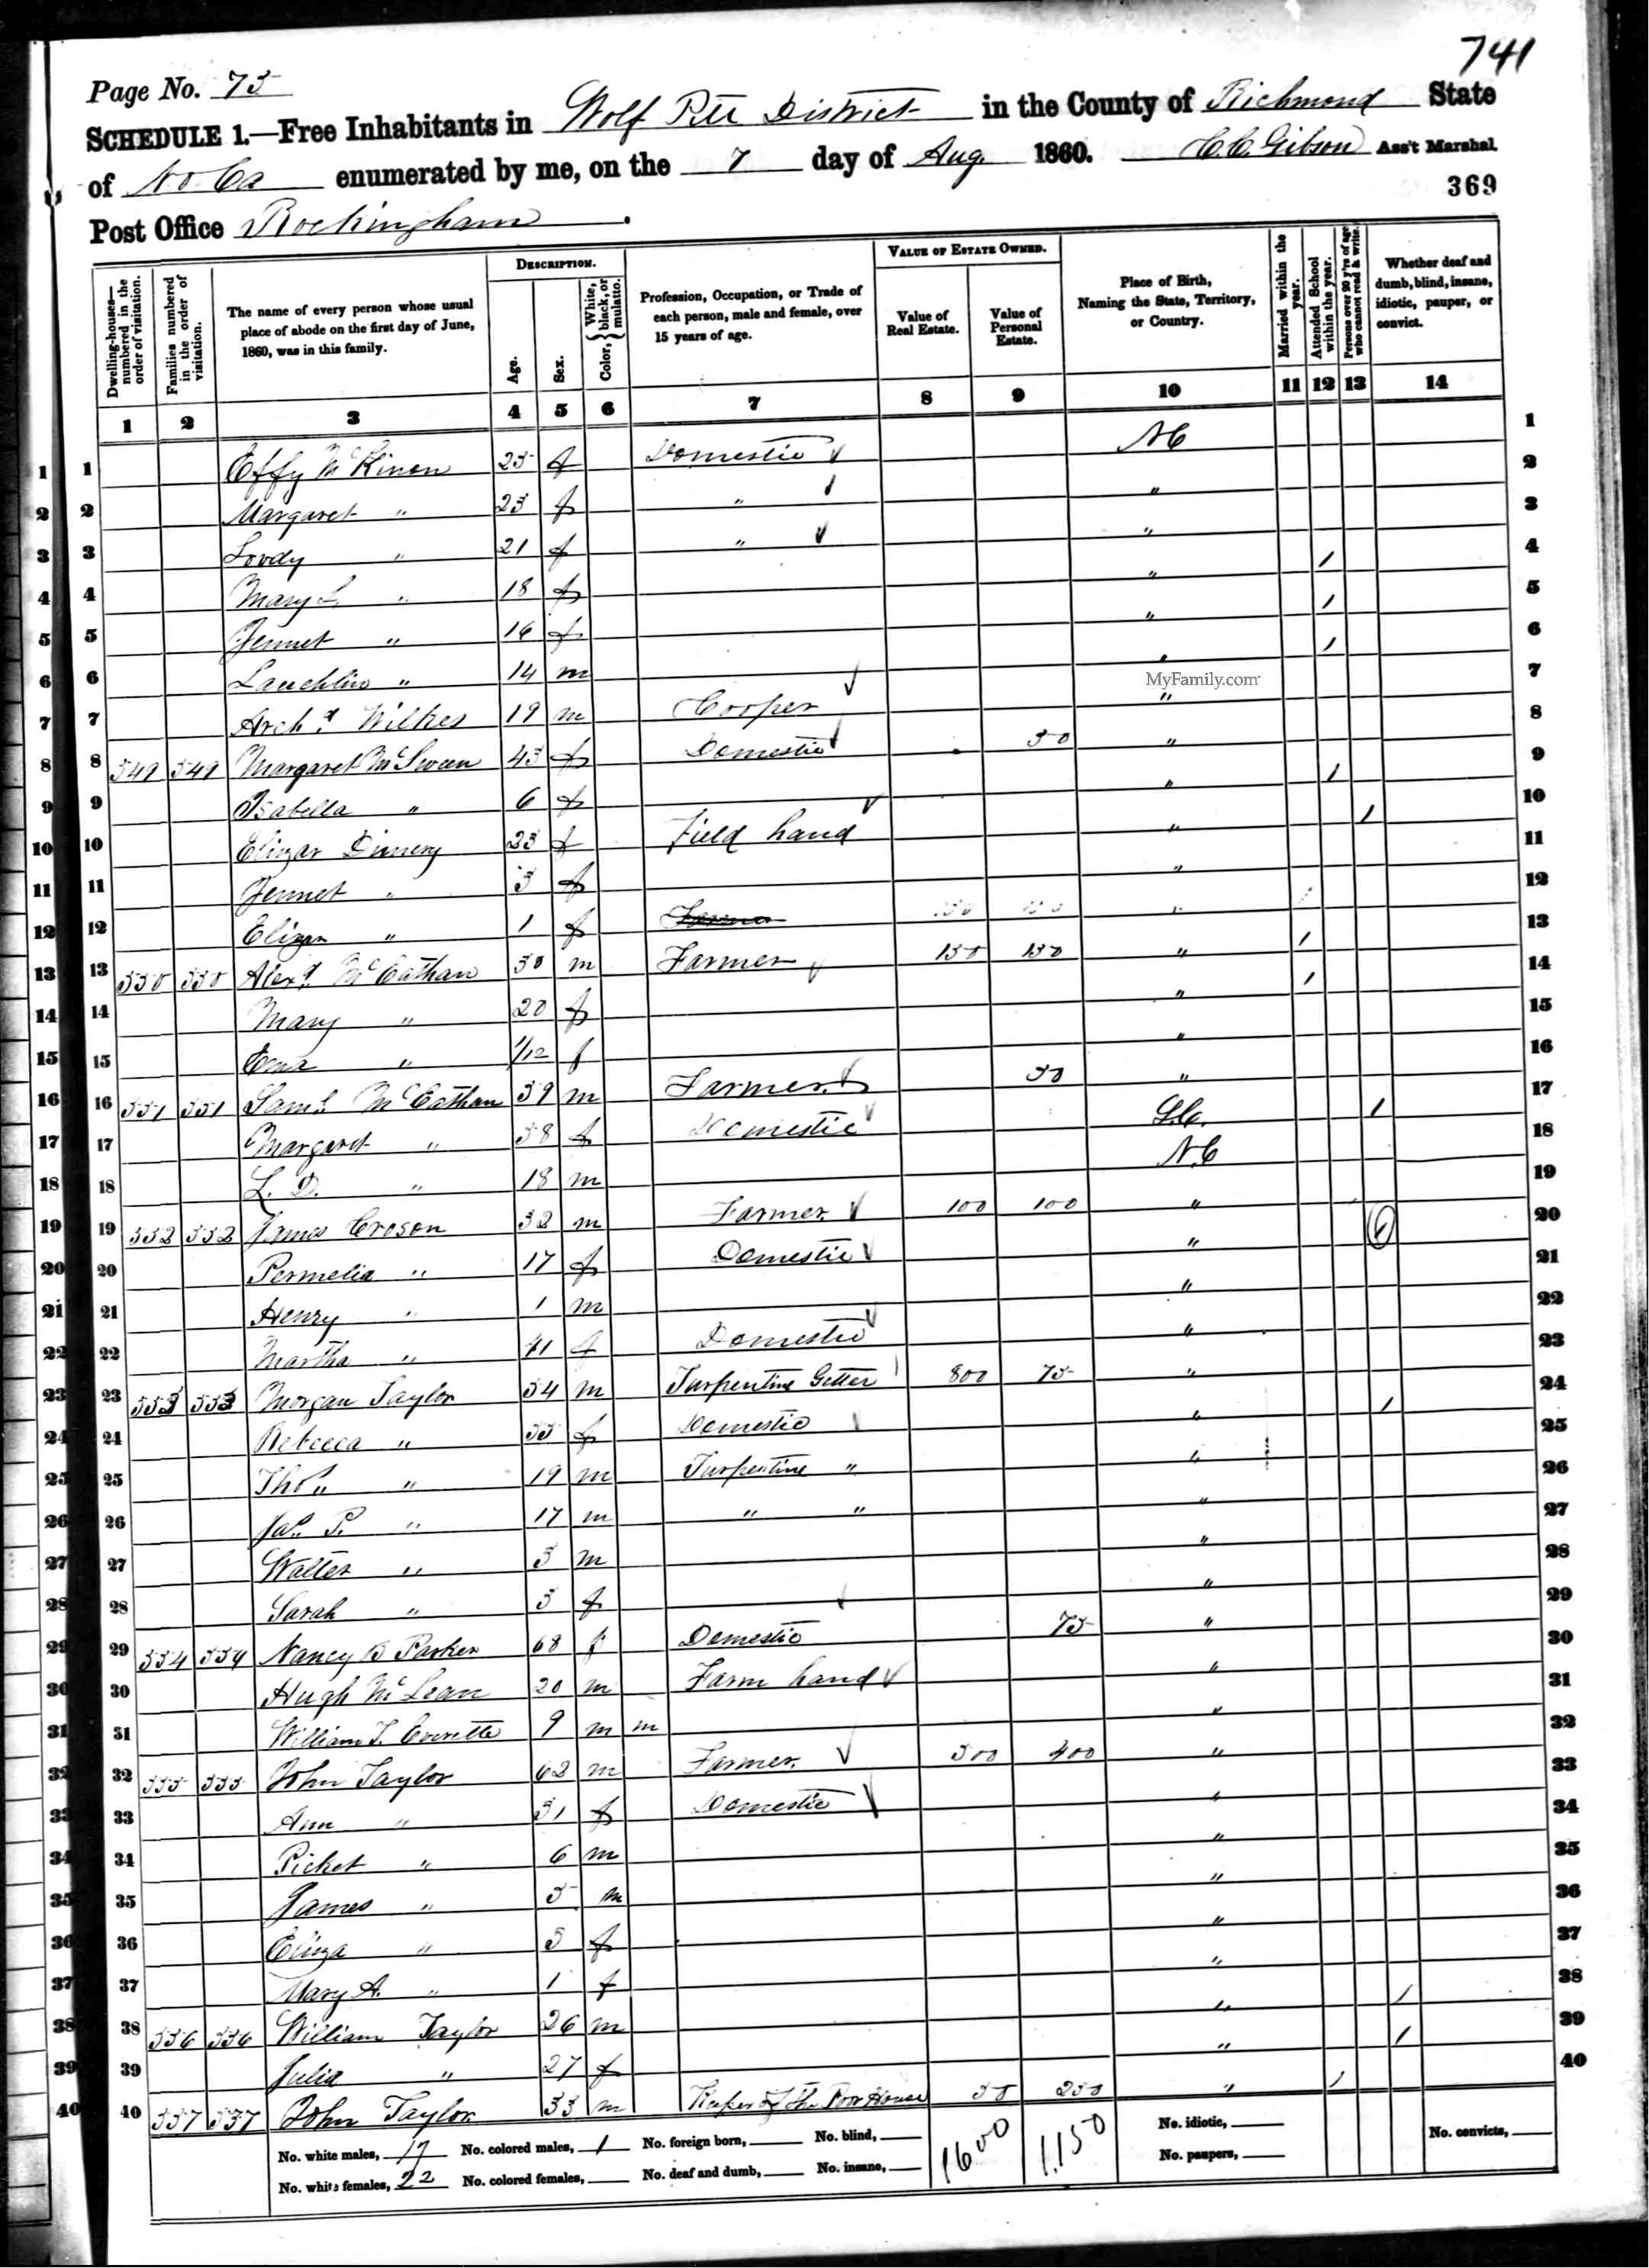 741
Page No. 75
SCHEDULE 1.—Free Inhabitants in Wolf Pitt District in the County of Richmond State
of No Ca enumerated by me, on the 7 day of Aug. 1860. C. C. Gibson Ass't Marshal.
369
Post Office Rockingham.
Dwelling-houses—numbered in the order of visitation.
Families numbered in the order of visitation.
The name of every person whose usual place of abode on the first day of June, 1860, was in this family.
DESCRIPTION.
Age.
Sex.
Color, { White, black, or mulatto.
Profession, Occupation, or Trade of each person, male and female, over 15 years of age.
VALUE OF ESTATE OWNED.
Value of Real Estate.
Value of Personal Estate.
Place of Birth, Naming the State, Territory, or Country.
Married within the year.
Attended School within the year.
Persons over 20 y'rs of age who cannot read & write.
Whether deaf and dumb, blind, insane, idiotic, pauper, or convict.
1 2 3 4 5 6 7 8 9 10 11 12 13 14
1 Effy McKinon 25 f Domestic NC 1
2 Margaret " 23 f " " 2
3 Lovdy " 21 f " " 3
4 Mary L. " 18 f " / 4
5 Jennet " 16 f " / 5
6 Lauchlin " 14 m " / 6
MyFamily.com
7 Archd. Wilkes 19 m Cooper " 7
8 549 549 Margaret McSween 43 f Domestic 50 " 8
9 Isabella " 6 f " / 9
10 Elizar Dimery 23 f Field hand " / 10
11 Jennet " 3 f " 11
12 Elizar " 1 f Farmer " 12
13 550 550 Alexr. McCathan 30 m Farmer 150 150 " / 13
14 Mary " 20 f " / 14
15 " 1/12 f " 15
16 551 551 Saml. McCathan 39 m Farmer 50 " 16
17 Margaret " 38 f Domestic S.C. / 17
18 L. D. " 18 m N.C 18
19 552 552 James Croson 32 m Farmer 100 100 " 19
20 Permelia " 17 f Domestic " 20
21 Henry " 1 m " 21
22 Martha " 41 f Domestic " 22
23 553 553 Morgan Taylor 54 m Turpentine Getter 800 75 " 23
24 Rebecca " 55 f Domestic " / 24
25 Thos. " 19 m Turpentine " " 25
26 Jas. P. " 17 m " " " 26
27 Walter " 5 m " 27
28 Sarah " 3 f " 28
29 554 554 Nancy B Parker 68 f Domestic 75 " 29
30 Hugh McLean 20 m Farm hand " 30
31 William T. Everette 9 m m " 31
32 555 555 John Taylor 62 m Farmer 500 400 " 32
33 Ann " 31 f Domestic " 33
34 Picket " 6 m " 34
35 James " 5 m " 35
36 Eliza " 3 f " 36
37 Mary A. " 1 f " 37
38 556 556 William Taylor 26 m " / 38
39 Julia " 27 f " / 39
40 557 557 John Taylor 33 m Keeper of the Poor House 50 250 " / 40
No. white males, 17 No. colored males, 1 No. foreign born, No. blind, 1600 1,150 No. idiotic, No. convicts,
No. white females, 22 No. colored females, No. deaf and dumb, No. insane, No. paupers,